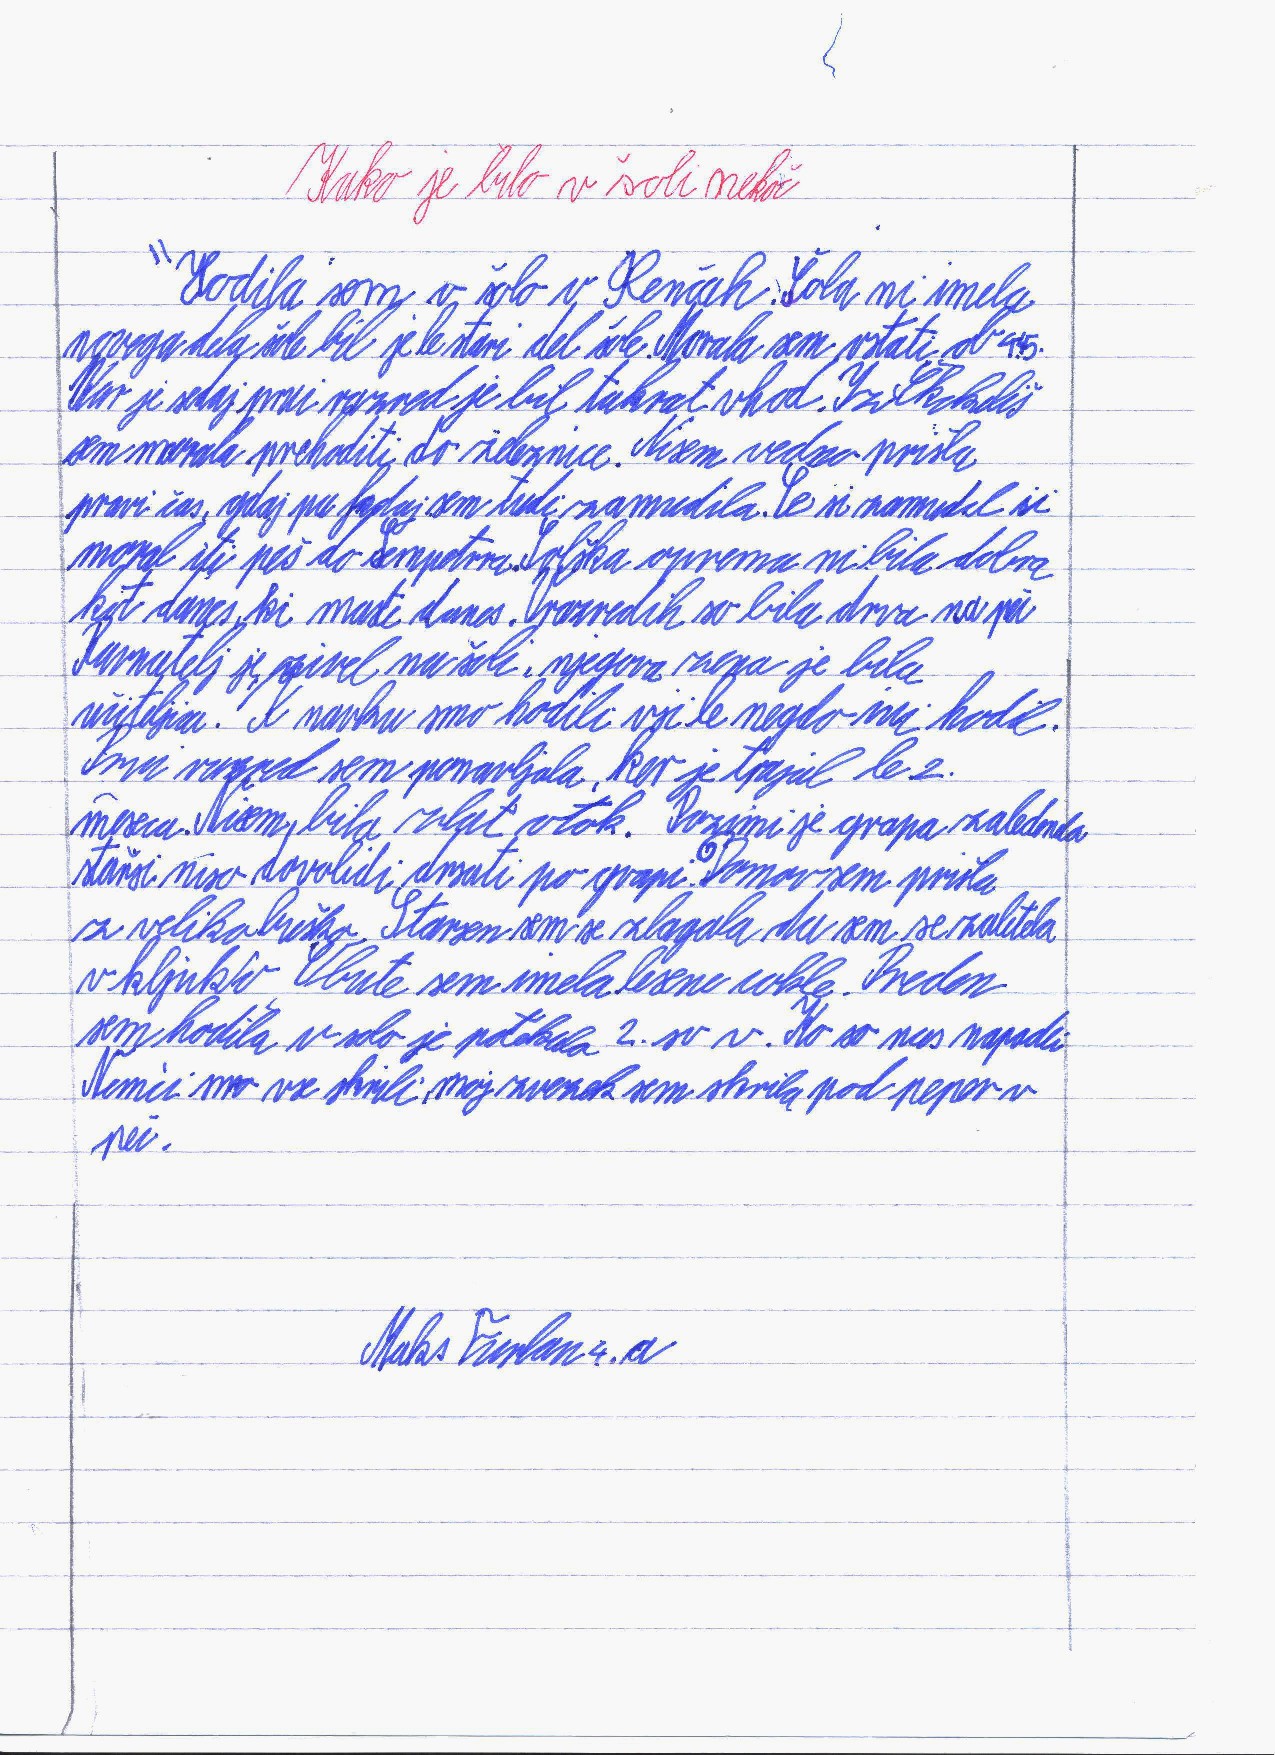 Kako je bilo v šoli nekoč
"Hodila sem v šolo v Renčah. Šola ni imela
novega dela šole bil je le stari del šole. Morala sem vstati ob 4.45.
Kar je sedaj prvi razred je bil takrat vhod. Iz
sem morala prehoditi do železnice. Nisem vedno prišla
pravi čas, kdaj pa kdaj sem tudi zamudila. Če si zamudil si
moral iti peš do Šempetra. Šolska oprema ni bila dobra
kot danes, ki maste danes. V razredih so bila drva na peč
Ravnatelj je živel na šoli, njegova zena je bila
učiteljica. K navku smo hodili vsi le negdo ni hodil.
Prvi razred sem ponavljala, ker je trajal le 2.
meseca. Nisem bila zlat otok. Pozimi je grapa zaledenela
starši niso dovolili drsati po grapi. Domov sem prišla
z veliko buško. Starsen sem se zlagala da sem se zaletela
v kljuko. Obute sem imela lesene cokle. Preden
sem hodila v solo je potekala 2. sv v. Ko so nas napadli
Nemci smo vse skrili, moj zvezek sem skrila pod peper v
peč.
Maks Furlan 4. a